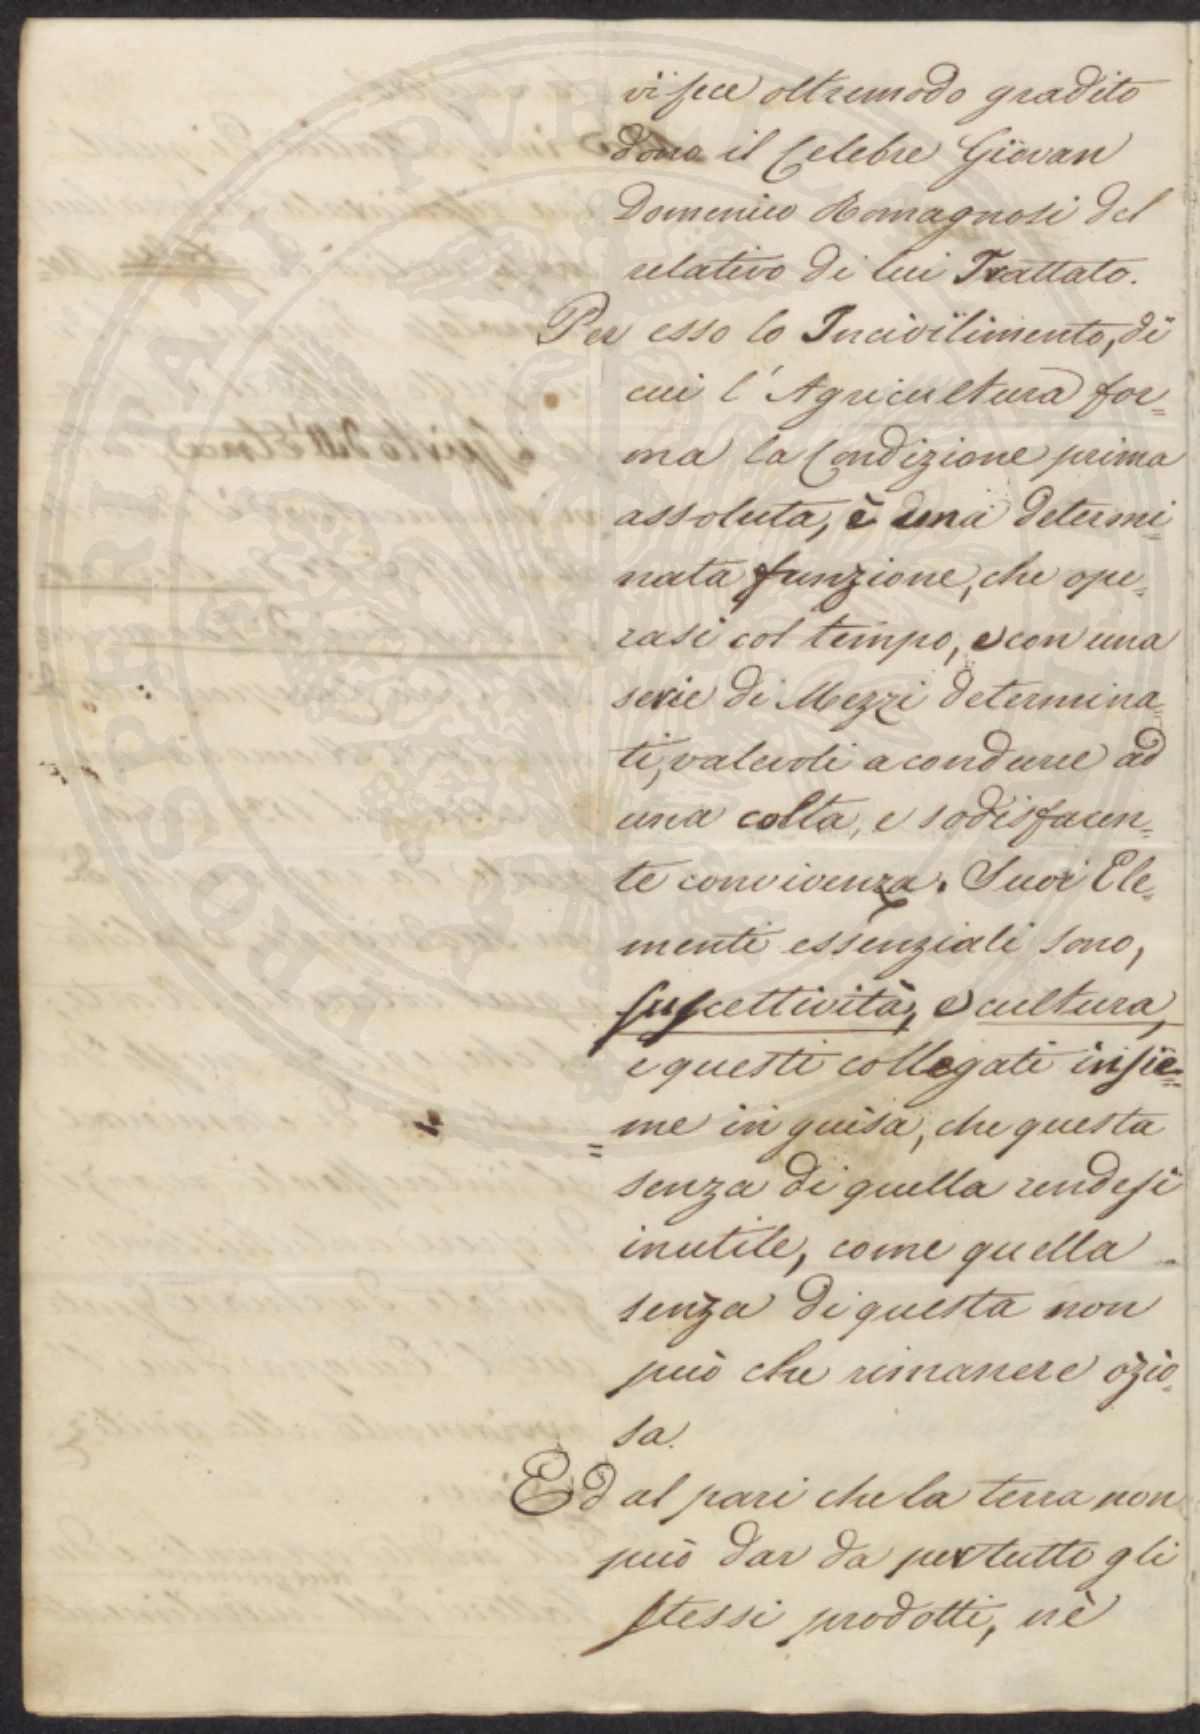 vi fece oltremodo gradito
dono il Celebre Giovan
Domenico Romagnosi del
relativo di lui Trattato.
Per esso lo Incivilimento, di
cui l'Agricultura for=
ma la Condizione prima
assoluta, è una determi=
nata funzione, che ope=
rasi col tempo, e con una
serie di Mezzi determina=
ti, valevoli a condurre ad
una colta, e sodisfacen=
te convivenza. Suoi Ele=
menti essenziali sono,
suscettività, e cultura,
e questi collegati insie=
=me in guisa, che questa
senza di quella rendesi
inutile, come quella
senza di questa non
può che rimanere ozio=
sa.
Ed al pari che la terra non
può dar da pertutto gli
stessi prodotti, nè
PROSPERITATI PUBLICAE